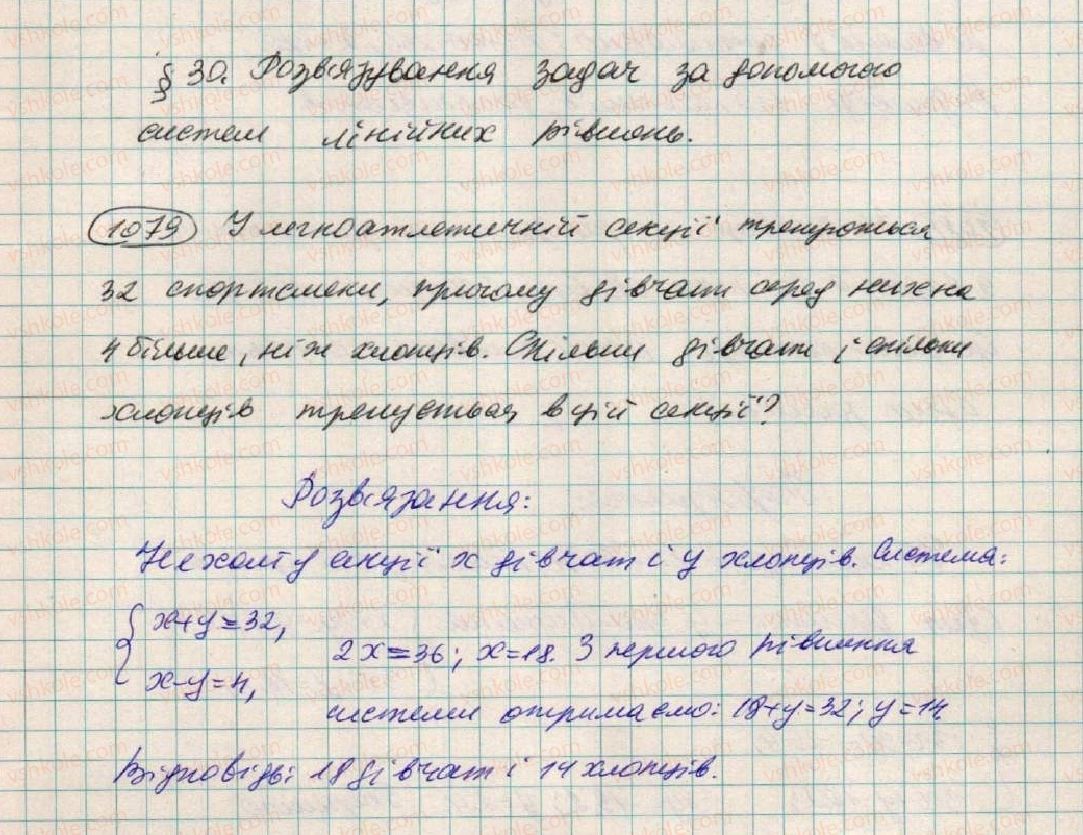 § 30. Розв'язування задач за допомогою
систем лінійних рівнянь.
1079 У легкоатлетичній секції тренуються
32 спортсмени, причому дівчат серед них на
4 більше, ніж хлопців. Скільки дівчат і скільки
хлопців тренується в цій секції?
Розв'язання:
Нехай у секції x дівчат і y хлопців. Система:
x+y=32,
2x=36; x=18. З першого рівняння
x-y=4,
системи отримаємо: 18+y=32; y=14.
Відповідь: 18 дівчат і 14 хлопців.
vshkole.com